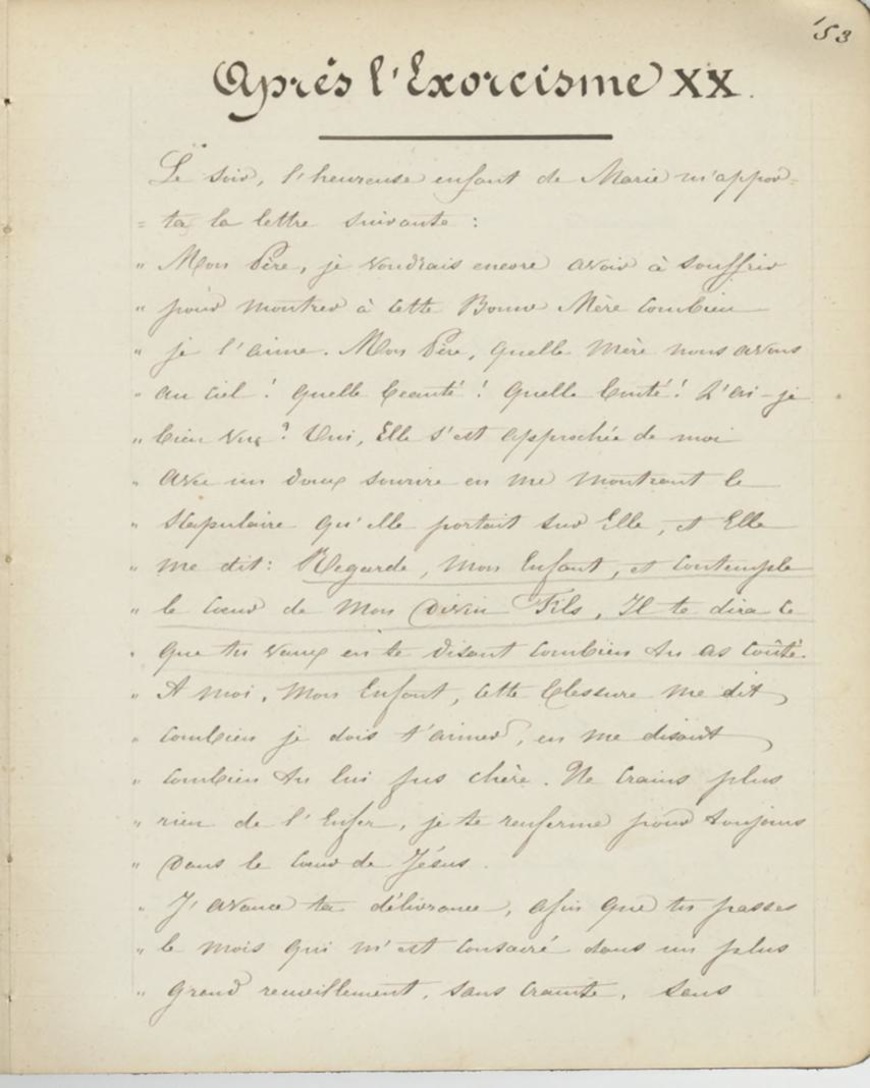 153
Après l'Exorcisme XX.
Le soir, l'heureuse enfant de Marie m'appor=
= ta la lettre suivante :
" Mon Père, je voudrais encore avoir à souffrir
" pour montrer à cette Bonne Mère combien
" je l'aime. Mon Père, quelle Mère nous avons
" au ciel ! quelle beauté ! quelle bonté ! L'ai-je
" bien vue ? Oui, Elle s'est approchée de moi
" avec un doux sourire en me montrant le
" Scapulaire qu'elle portait sur Elle, et Elle
" me dit : "Regarde, mon Enfant, et contemple
" le cœur de Mon Divin Fils, Il te dira ce
" que tu vaux en te disant combien tu as coûté.
" A moi, mon Enfant, cette blessure me dit
" combien je dois t'aimer, en me disant
" combien tu lui fus chère. Ne crains plus
" rien de l'Enfer, je te renferme pour toujours
" Dans le cœur de Jésus.
" J'avance ta délivrance, afin que tu passes
" le mois qui m'est consacré dans un plus
" grand recueillement, sans crainte, sans